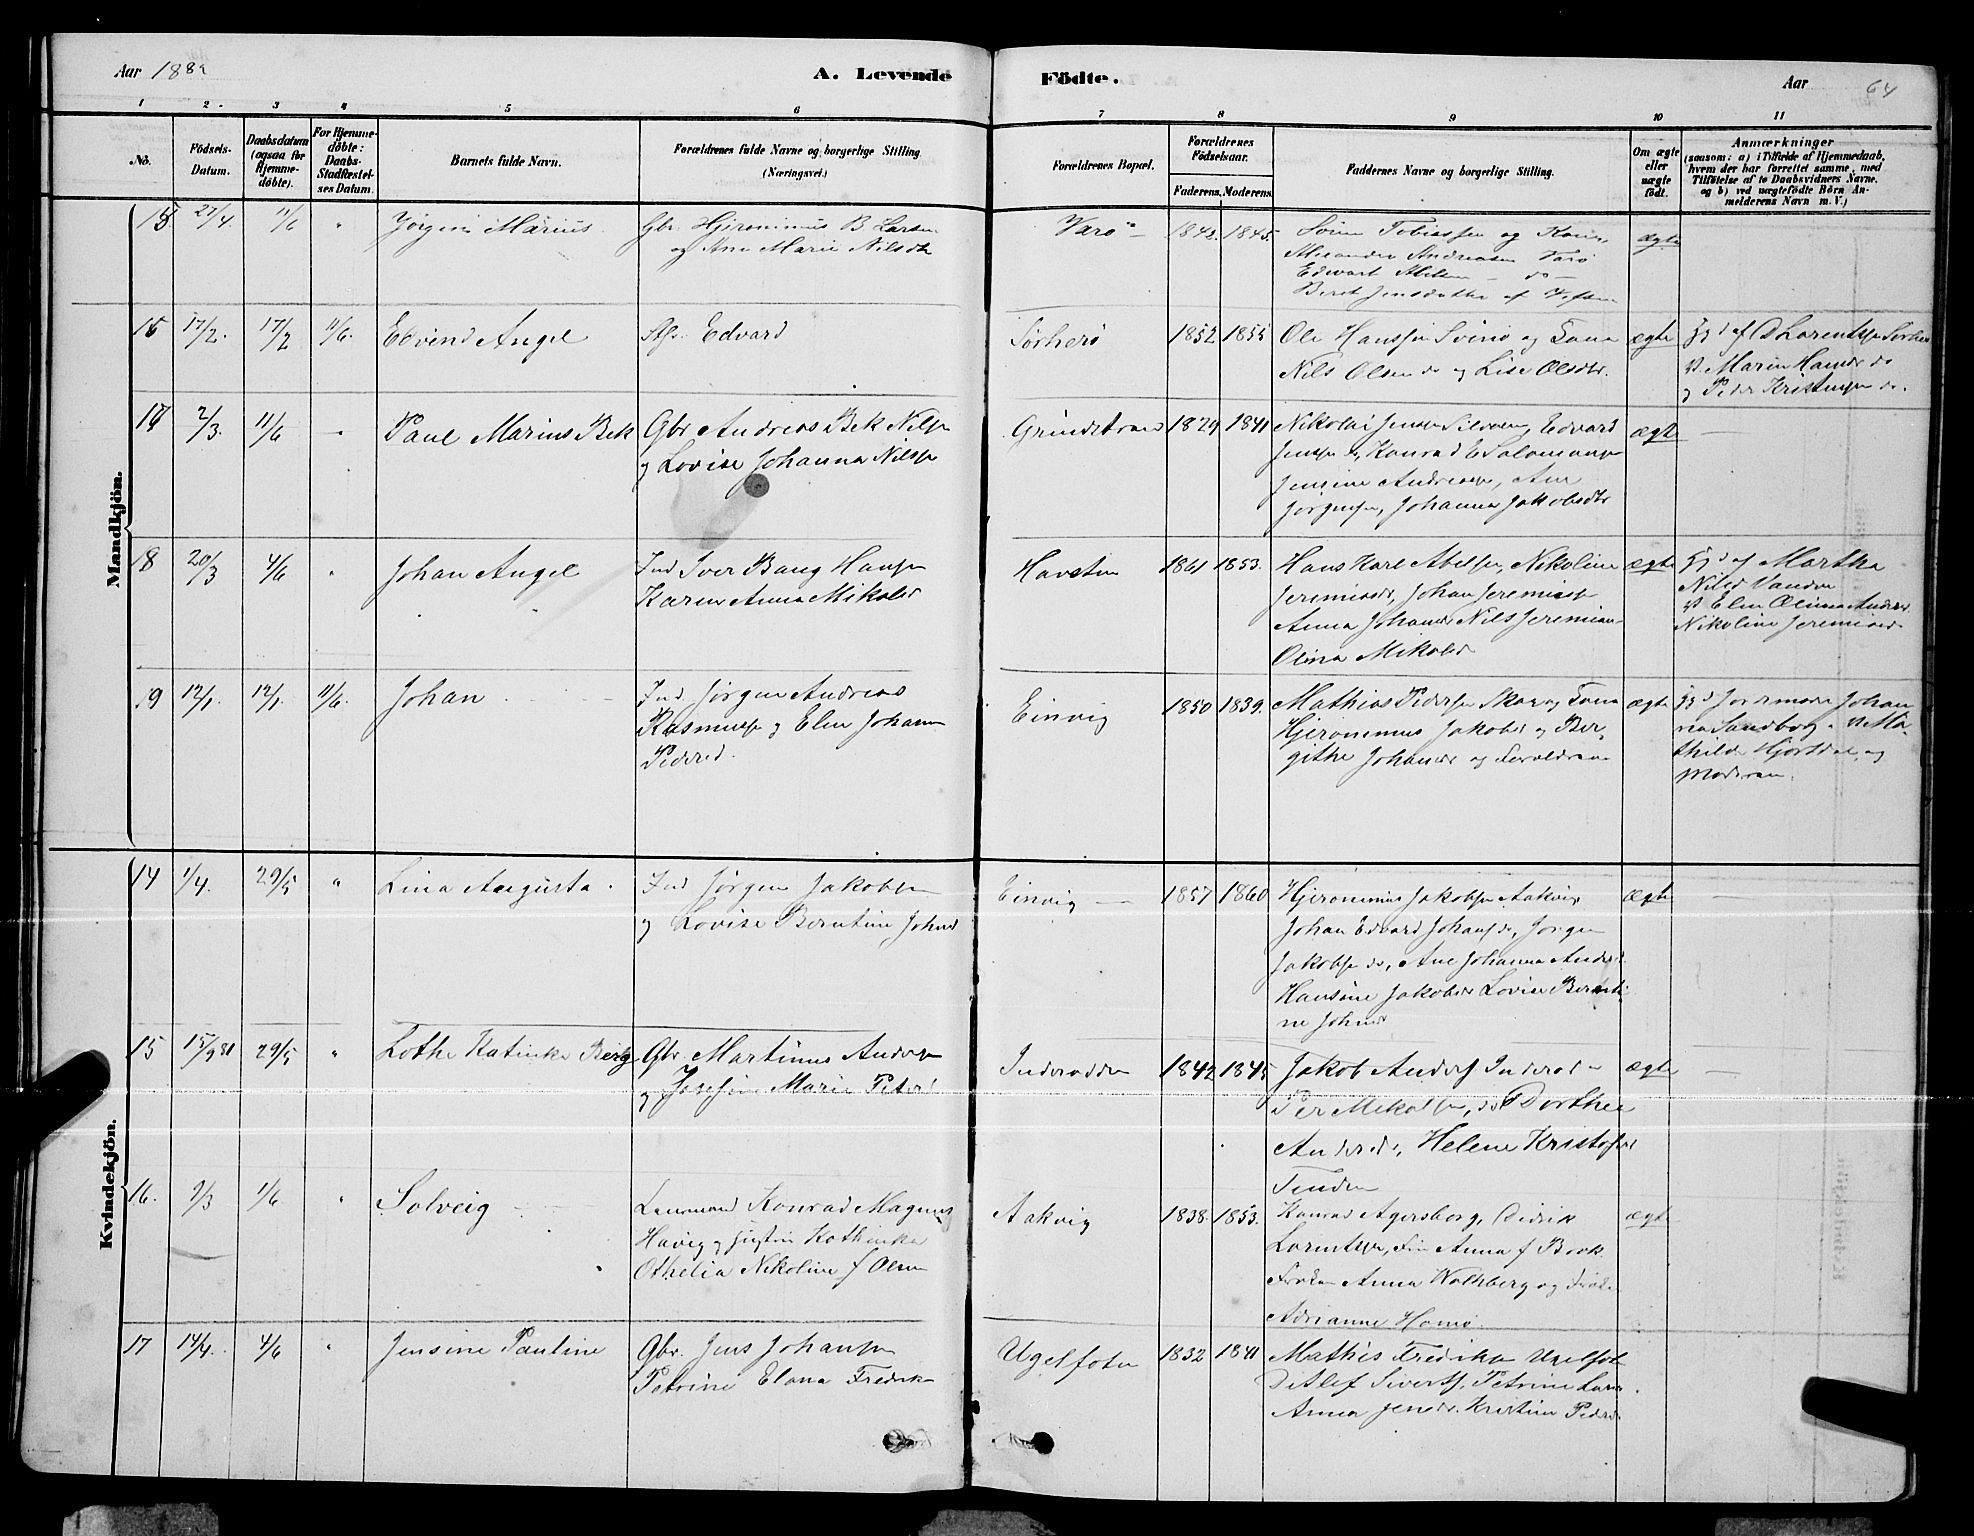 Aar 188
A. Levende
Födte.
Aar 64
1 2 3 4 5 6 7 8 9 10 11
No.
Födsels-Datum.
Daabsdatum (ogsaa for Hjemme-döbte).
For Hjemme-döbte: Daabs-Stadfæstel-ses Datum.
Barnets fulde Navn.
Forældrenes fulde Navne og borgerlige Stilling (Næringsvei.)
Forældrenes Bopæl.
Forældrenes Födselsaar.
Faderens. Moderens.
Faddernes Navne og borgerlige Stilling.
Om ægte eller uægte födt.
Anmærkninger
(saasom: a) i Tilfælde af Hjemmedaab, hvem der har forrettet samme, med Tilföielse af to Daabsvidners Navne, og b) ved uægtefödte Börn An-melderens Navn m. V.)
Mandkjön.
15 27/4 11/6 " Jørgen Marius Gbr. Hjeronimus B Larsen
og Ane Marie Nilsdtr
Varø 1842. 1845. Sören Tobiassen og Kone,
Andreasen Varø
Edvart
Beret Jensdatter af
ægte
16 17/2. 17/2 11/6. Edvind Angel Edvard
Sørherø 1852 1855 Ole Hanssen Svinø og Kona
Nils Olsen do og Lise Olsdtr.
ægte
Hjd af Lorentsen
Marie Hansdr do
og Peder do.
17 2/3. 11/6 " Paul Marius Bek Gbr Andreas Bek Nilsen
og Lovise Johanna Nilsen
Grindstrand 1829 1841 Nikolai Jensen Edvard
Jensen do, Konrad E Salomonsen
Jensine Andreasen, Ane
Jørgensen, Johanna Jakobsdtr
ægte
18 20/3 4/6 " Johan Angel Ind Iver Bang Hansen
Karen Anna Mikalsd
Havsten 1861 1853. Hans Karl Abelsen, Nikoline
Jeremiasdr, Johan Jeremiassen
Anna Johansdr Nils Jeremiasen
Olina Mikalsd
ægte
Hjd af Martha
Nilsd Vanden
v Elen Olina Andersd
Nikoline Jeremiasd.
19 12/1 12/1 11/6. Johan Ind Jørgen Andreas
Rasmusen og Elen Johanna
Pedersd.
Einvig 1850 1839. Mathias Pedersen Skar og Kona
Hjeronimus Jakobsen og Ber-
githe Johansdr og Forældrene
ægte
Hjd Jormoder Johan
na Sandberg. v Ma-
thilde Hjortdal og
Moderen.
Kvindekjön.
14 1/4. 29/5 " Lina Augusta. Ind Jørgen Jakobsen
og Lovise Berntine Johnsd
Einvig 1857 1860 Hjeronimus Jakobsen Aakvig
Johan Edvard Johansen do, Jørgen
Jakobsen do, Ane Johanna Andersd
Hansine Jakobsdr Lovise Bernti
ne Johnsd
ægte
15 15/9 81 29/5 " Lothe Katinka Berg Gbr Martinus Andersen
og Josefine Marie Petersd
Inderodden 1842 1845 Jakob Anders Inderod
Per Mikalsen, do Dorthea
Andersdr, Helene Kristofersd
ægte
16. 2/3 1/6 " Solveig Lensmand Konrad Magnus
Havig og Hustru Kathinka
Othelia Nikoline f Olsen
Aakvig 1838. 1853. Konrad Agersborg, Didrik
Lorentsen, Anna f Book
Frøken Anna Wolhberg og Frøken
Adrianne Homø.
ægte
17 14/4. 4/6 " Jensine Pauline Gbr. Jens Johansen
Petrine Elena Fredriks
Ugelfoten 1832 1841 Mathis Fredriksen Ugelfot
Detlef Sivertsen, Petrine Lars
Anna Jensdr. Kristine Pedersd.